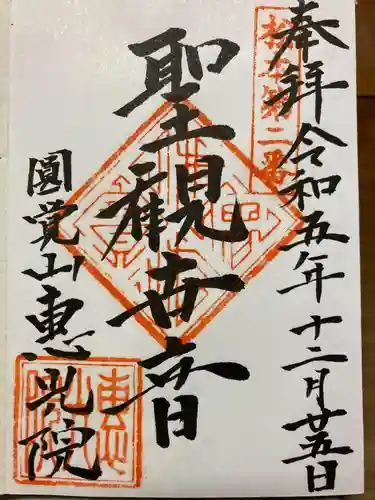 奉拝 令和五年十二月廿五日
聖観世音
圓覚山恵光院